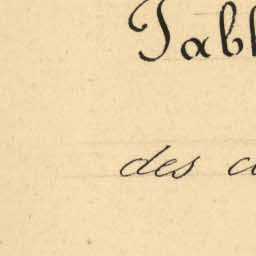 Tabl
des a